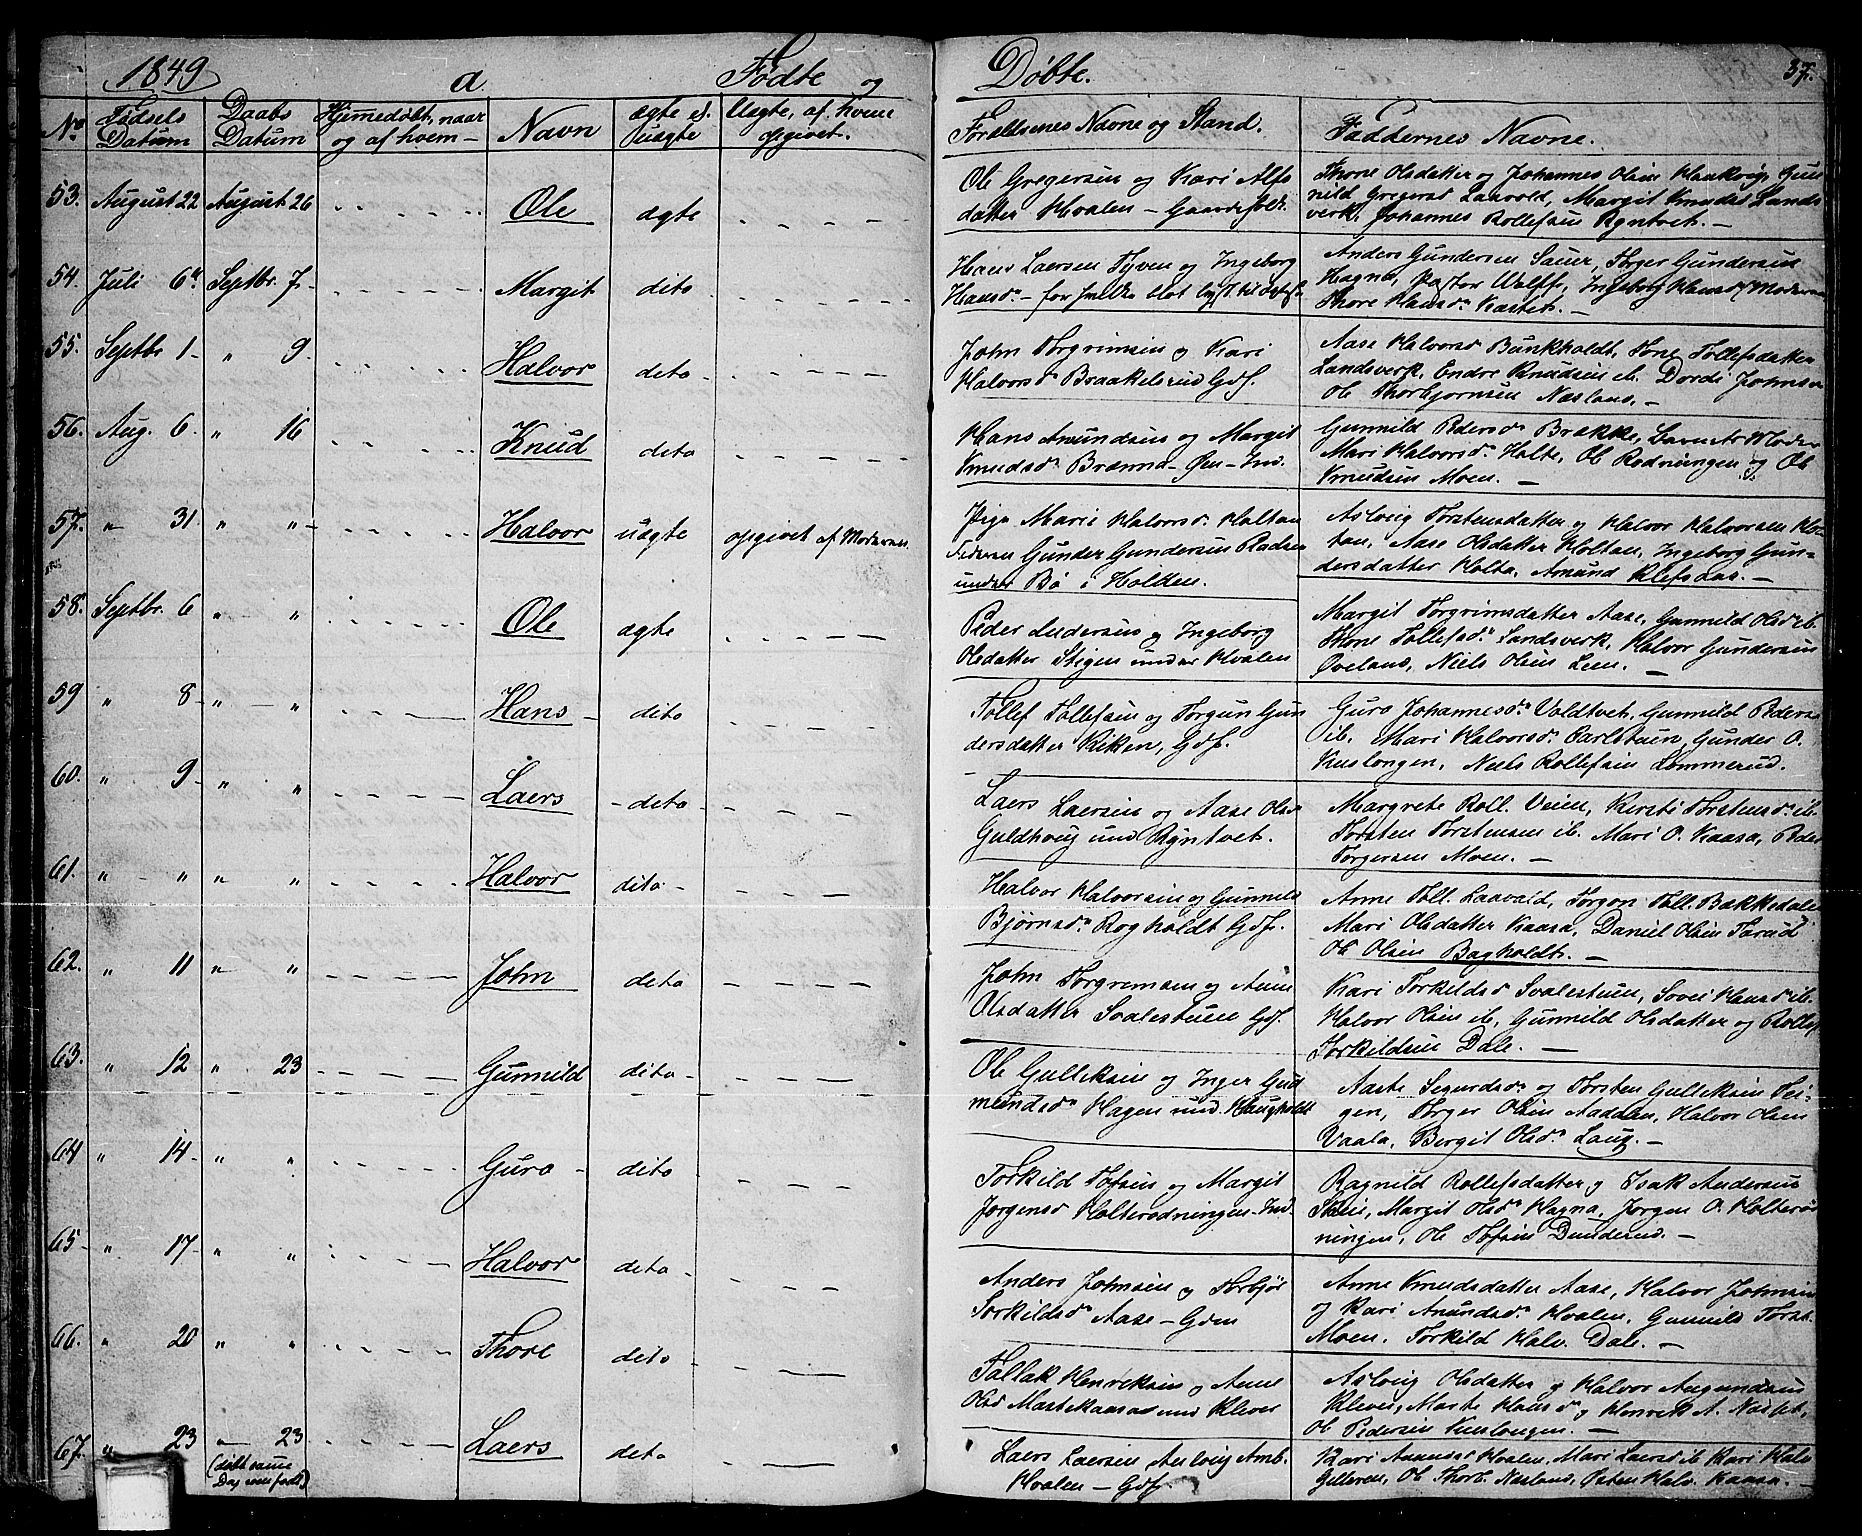 1849 a Fødte og Døbte. 37.
No Fødsels Datum Daabs Datum Hjemmedøbt, naar og af hvem Navn ægte el. uægte Uægte, af hvem opgivet. Forældrenes Navne og Stand. Faddernes Navne.
53. August 22 August 26 Ole ægte
Ole Gregersen og Kari Alfs
datter Hvalen - Gaardefolk.
Thone Olsdatter og Johannes Olsen Haukvig, Gun
nild Gregersd Laavold, Margit Knudsd Lands
verk, Johannes Rollefsen Ryntvet. -
54. Juli 6 Septbr. 7 Margit dito
Hans Laersen Tyven og Ingeborg
Hansd.
Anders Gundersen Sauer, Torger Gundersen
Hagna, Pastor Wolff, Ingeborg Hansd Moderen
Thore Hansd. Kaste. -
55. Septbr 1 " 9 Halvor deto
John Torgrimsen og Kari
Halvorsd. Braakelsrud Gdf.
Aase Halvorsd Bunkholdt, Tone Tollefsdatter
Landsverk, Endre Knudsen ib. Dorde Johnsd
Ole Thorbjornsen Næsland. -
56. Aug. 6. " 16 Knud deto
Hans Amundsen og Margit
Knudsd. Brænna - Ind.
Gunnild Pedersd. Brække, Moder
Mari Halvorsd. Holte, Ole Rodningen og Ole
Knudsen Moen. -
57. " 31. " " Halvor uægte opgivet af Moderen
Pige Marie Halvorsd. Holtan
Faderen Gunder Gundersen
under Bø i Holden.
Asloug Torstensdatter og Halvor Halvorsen Hol
tan, Aase Olsdatter Holtan, Ingeborg Gun-
dersdatter Holta, Amund Klefsaas. -
58. Septbr. 6 " " Ole ægte
Peder Andersen og Ingeborg
Olsdatter Stigen under Hvalen
Margit Torgrimsdatter Aase, Gunnild Olsd ib.
Thone Tollefsd. Landsverk, Halvor Gundersen
Øveland, Niels Olsen Leen. -
59 " 8 " " Hans dito
Tollef Tollefsen og Torgun Gun
dersdatter Riken, Gdf.
Guro Johannesd. Voldtvet, Gunnild Pedersd
ib. Mari Halvorsd. Carlstuen, Gunder O.
Kuslongen, Niels Rollefsen Lommerud.
60. " 9 " " Laers deto
Laers Laersen og Aase Olsd
Guldhoug und Ryntvet.
Margrete Roll. Veien, Kersti Torstensd. ib.
Torsten Torstensen ib. Mari O. Kaasa, Peder
Torgersen Moen. -
61. " " " " Halvor dito
Halvor Halvorsen og Gunnild
Bjørnsd. Bogholdt Gdf.
Anne Toll. Laavold, Torgon Toll. Bækkedal
Mari Olsdatter Kaasa, Daniel Olsen Tarud
Ole Olsen Bagholdt. -
62. " 11 " " John deto
John Torgrimsen og Anne
Olsdatter Svalestuen Gdf.
Kari Torkildsd Svalestuen, Sovei Hansd ib.
Halvor Olsen ib, Gunnild Olsdatter og Rollef
Torkildsen Dale. -
63. " 12 " 23 Gunnild dito
Ole Gulleksen og Inger Gud
mundsd. Hagen und Haugholdt
Aaste Segurdsd. og Torsten Gulleksen Tei-
gen, Torger Olsen Aadden, Halvor Olsen
Vaala, Bergit Olsd. Laug. -
64 " 14 " " Guro dito
Torkild Tofsen og Margit
Jørgensd Holterodningen - Ind.
Ragnild Rollefsdatter og Isak Andersen
Steie, Margit Olsd. Hagna, Jørgen O. Holterød
ningen, Ole Tofsen Dunderud. -
65 " 17 " " Halvor deto
Anders Johnsen og Torbjør
Torkildsd. Aase - Gden
Anne Knudsdatter Aase, Halvor Johnsen
og Kari Anundsd. Hvalen, Gunnild Torst.
Moen, Torkild Halv. Dale. -
66. " 20 " " Thore deto
Tallak Henreksen og Anne
Olsd Marte Kaasa und Klever
Asloug Olsdatter og Halvor Augundsen
Klever, Marte Hansd og Henrek A.
Ole Pedersen Kuslongen. -
67. " 23 " 23 Laers deto
(døbt samme
Dag som født)
Laers Laersen, Aslaug Amb.
Hvalen - Gdf.
Kari Anundsd Hvalen, Mari Laersd ib Kari Halv
Gilleven, Ole Thorb. Nasland, Peter Halv. Kaasa. -